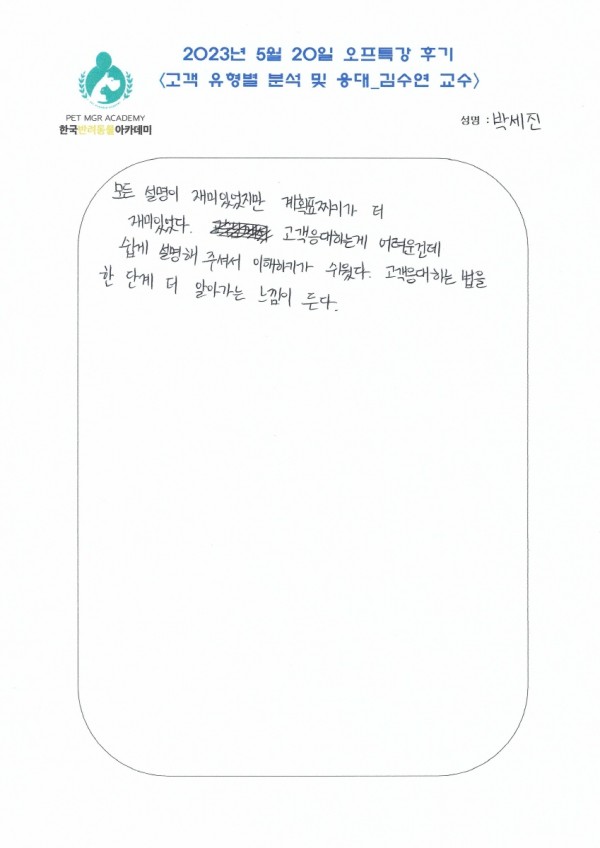 2023년 5월 20일 오프특강 후기
<고객 유형별 분석 및 응대_김수연 교수>
PET MGR ACADEMY
한국반려동물아카데미
성명 : 박세진
모든 설명이 재미있었지만 계획표짜기가 더
재미있었다. 고객응대하는게 어려운건데
쉽게 설명해 주셔서 이해하기가 쉬웠다. 고객응대하는 법을
한 단계 더 알아가는 느낌이 든다.